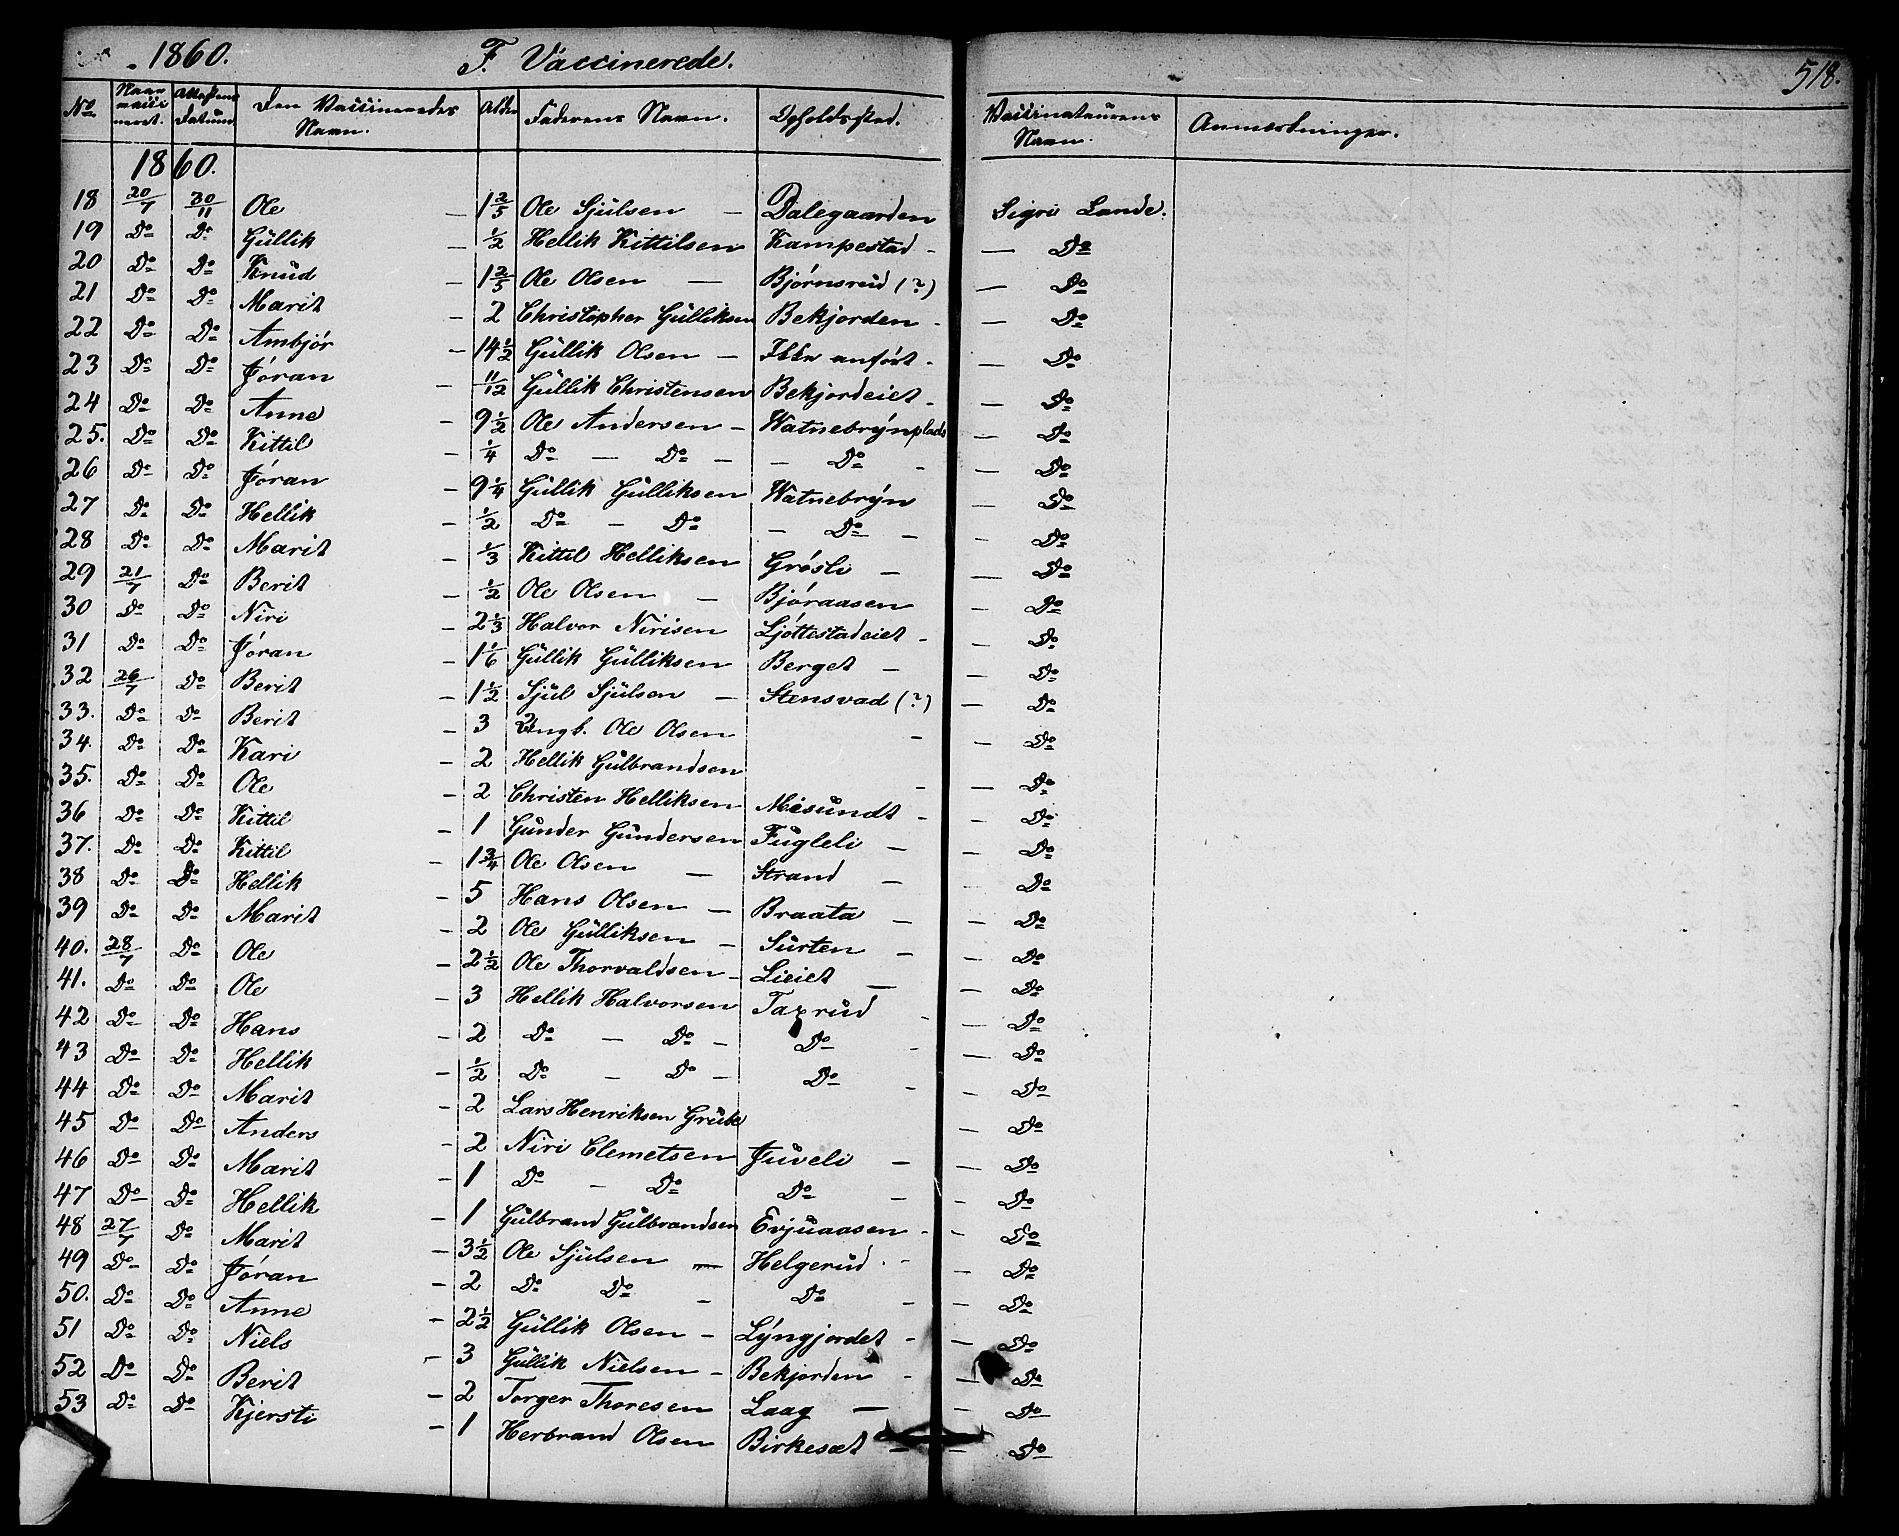 1860. F. Vaccinerede. 518.
No. Naar vacci neret. Attestens Datum Den Vaccineredes Navn. Alder Faderens Navn. Opholdssted. Vaccinateurens Navn. Anmærkninger.
1860.
18 20/7 30/11 Ole - 1 2/5 Ole Sjülsen - Dalegaarden Sigri Lande.
19 Do Do Güllik - 1/2 Hellik Kittilsen Kampestad - - Do
20 Do Do Knüd - 1 2/5 Ole Olsen - Bjørnsrüd (?) - Do
21 Do Do Marit - 2 Christopher Gülliksen Bekjorden - - Do
22 Do Do Ambjør - 14 1/2 Güllik Olsen - Ikke anført - - Do
23 Do Do Jøran - 11/12 Güllik Christensen Bekjordeiet - - Do
24 Do Do Anne - 9 1/2 Ole Andersen - Watnebrÿnplads - Do
25. Do Do Kittil - 1/4 Do - Do - - Do - - Do
26 Do Do Jøran - 9 1/4 Güllik Gülliksen Watnebrÿn - Do
27 Do Do Hellik - 1/2 Do - Do - Do - - Do
28 Do Do Marit - 1/3 Kittil Helliksen Grøsli - - Do
29 21/7 Do Berit - 1/2 Ole Olsen - Bjøraasen - Do
30 Do Do Niri - 2 1/3 Halvor Nirisen Ljøttestadeiet - - Do
31 Do Do Jøran - 1 1/6 Güllik Gülliksen Berget - - Do
32 26/7 Do Berit - 1 1/2 Sjül Sjülsen - Stensvad (?) - Do
33. Do Do Berit - 3 Ungk. Ole Olsen - - Do
34. Do Do Kari - 2 Hellik Gülbrandsen - - Do
35. Do Do Ole - 2 Christen Helliksen Misündt - - Do
36 Do Do Kittil - 1 Günder Gündersen Fügleli - - Do
37. Do Do Kittil - 1 3/4 Ole Olsen - Strand - - Do
38 Do Do Hellik - 5 Hans Olsen - Braata - - Do
39 Do Do Marit - 2 Ole Gülliksen - Sürten - - Do
40. 28/7 Do Ole - 2 1/2 Ole Thorvaldsen - Lieiet - - Do
41. Do Do Ole - 3 Hellik Halvorsen Taxrüd - - Do
42 Do Do Hans - 2 Do - Do - Do - - Do
43 Do Do Hellik - 1/2 Do - Do - Do - - Do
44 Do Do Marit - 2 Lars Henriksen Grübe - Do
45 Do Do Anders - 2 Niri Clemetsen Jüveli - - Do
46 Do Do Marit - 1 Do - Do Do - - Do
47 Do Do Hellik - 1 Gülbrand Gülbrandsen Evjüaasen - - Do
48 27/7 Do Marit - 3 1/2 Ole Sjülsen - Helgerüd - - Do
49 Do Do Jøran - 2 Do Do - Do - - Do
50. Do Do Anne - 2 1/2 Güllik Olsen - Lÿngjordet - - Do
51 Do Do Niels - 3 Güllik Nielsen - Bekjorden - - Do
52 Do Do Berit - 2 Torger Thoresen Laag - - Do
53 Do Do Kjersti - 1 Herbrand Olsen Birkesæt - - Do